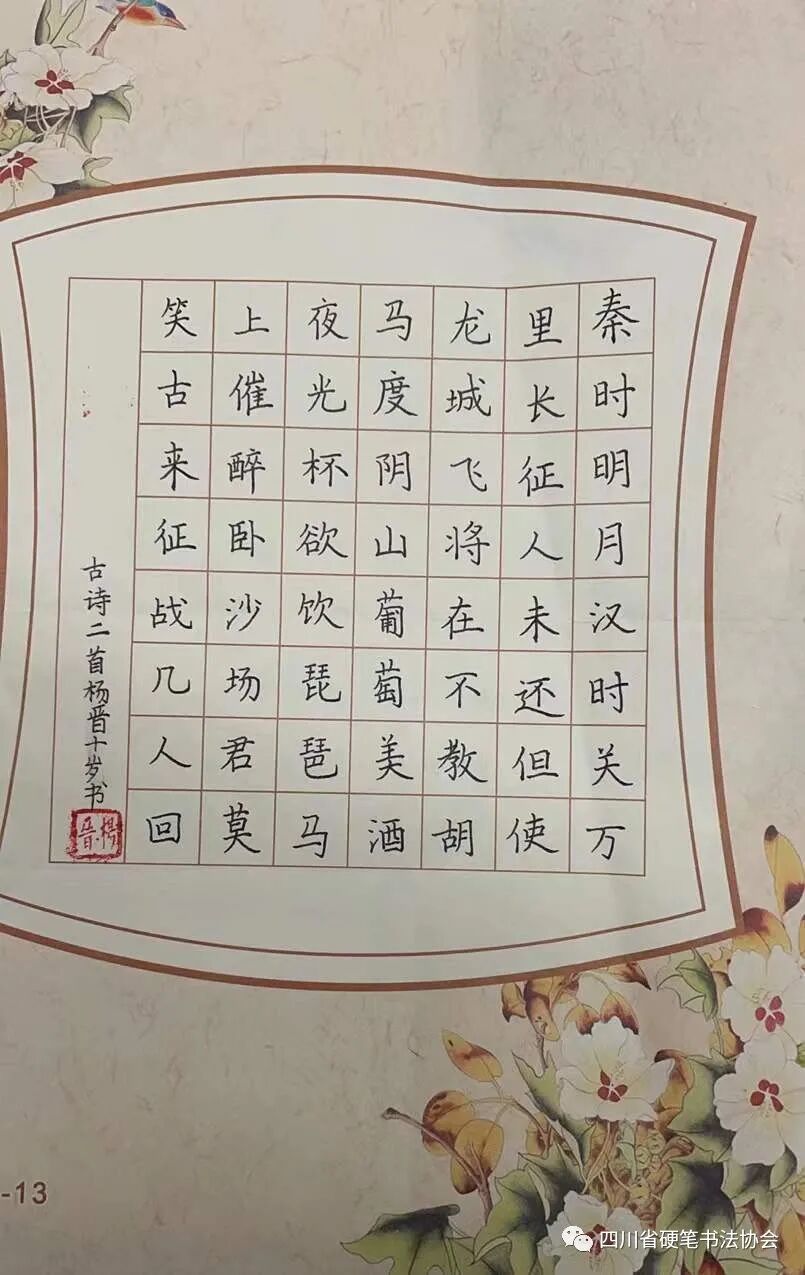 秦时明月汉时关万
里长征人未还但使
龙城飞将在不教胡
马度阴山葡萄美酒
夜光杯欲饮琵琶马
上催醉卧沙场君莫
笑古来征战几人回
古诗二首杨晋十岁书
杨晋
-13
四川省硬笔书法协会